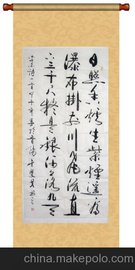 日照香爐生紫煙遙看
瀑布掛前川飛流直
下三千尺疑是銀河落九天
china.makepolo.com